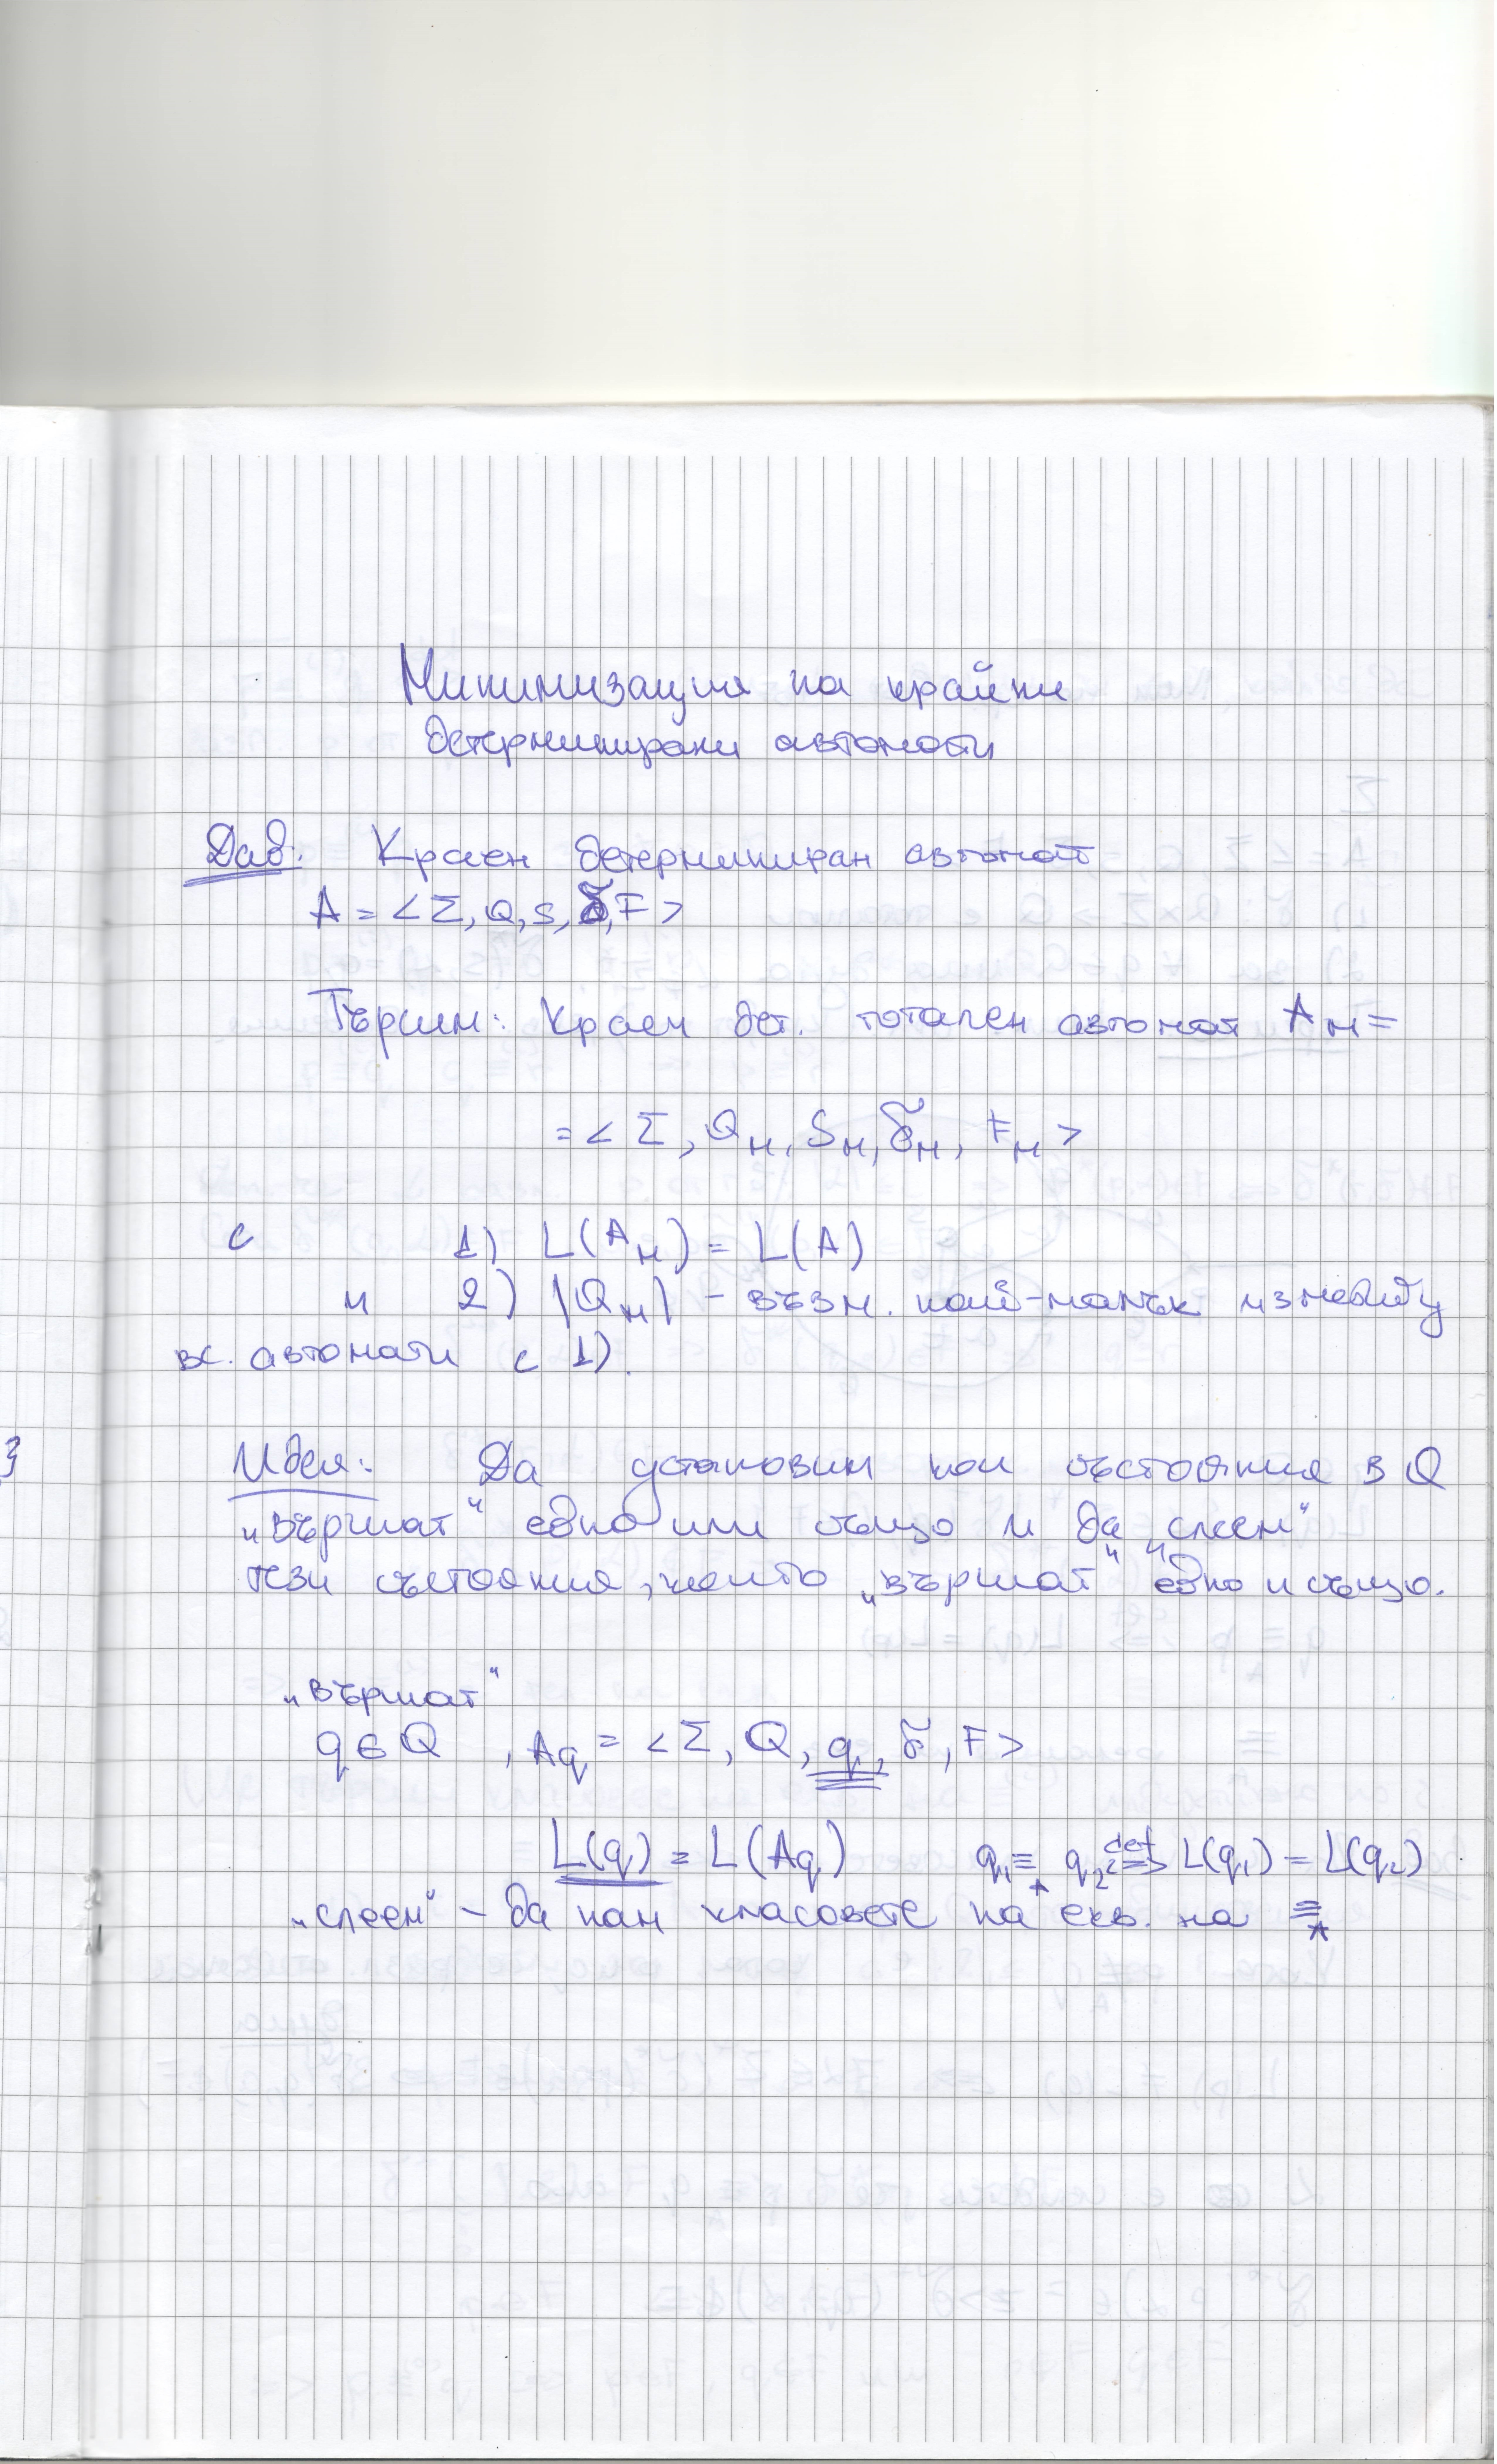 Минимизация на крайни
детерминирани автомати
Дад: Краен детерминиран автомат
A = <Σ, Q, s, δ, F>
Търсим: Краен дет. тотален автомат Aм =
= <Σ, Qм, Sм, δм, Fм>
с 1) L(Aм) = L(A)
и 2) |Qм| - възм. най-малък измежду
вс. автомати с 1).
Идея: Да установим кои състояния в Q
„вършат“ едно или също и да „слеем“
тези състояния, които „вършат“ едно и също.
„вършат“
q ∈ Q , Aq = <Σ, Q, q, δ, F>
L(q) = L(Aq) q₁ ≡_A q₂ <=>^def L(q₁) = L(q₂)
„слеем“ - да нам класовете на екв. на ≡_A